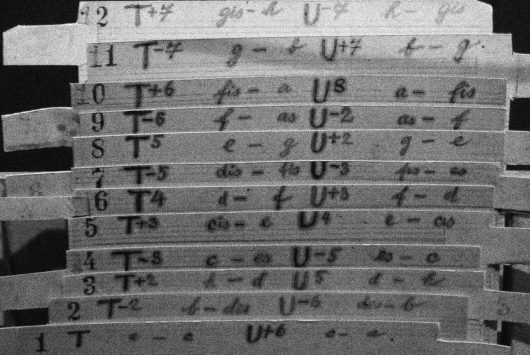 12 T+7 gis-h U-7 h-gis
11 T-7 g-b U+7 b-g.
10 T+6 fis-a U8 a-fis
9 T-6 f-as U-2 as-f
8 T5 e-g U+2 g-e
7 T-5 dis-fis U-3
6 T4 d-f U+3 f-d
5 T+3 cis-e U4 e-cis
4 T-3 c-es U-5 es-c
3 T+2 h-d U5 d-h
2 T-2 b-des U-6 des-b
1 T U+6